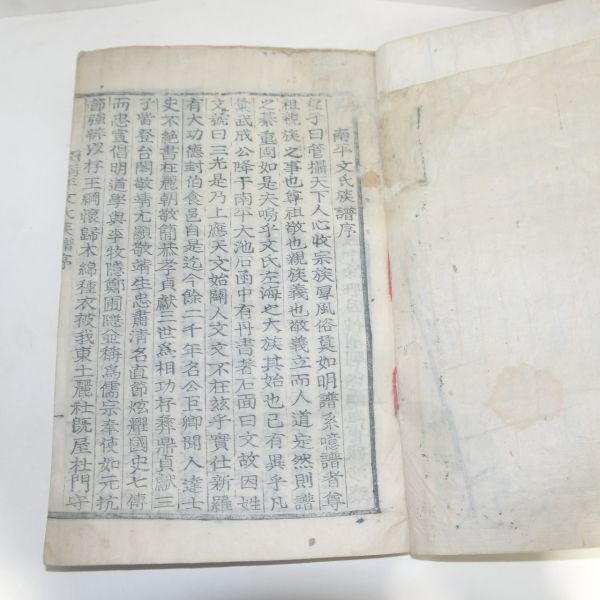 南平文氏族譜序
程子曰管攝天下人心收宗族厚風俗莫如明譜系噫譜者尊
祖親族之事也尊祖敬也親族義也敬義立而人道定然則譜
之綦重固如是夫嗚乎文氏左海之大族其始也已有異乎凡
彙武成公降于南平大池石函中有丹書著石面曰文故因姓
文號曰三光是乃上應天文始闢人文文不在玆乎實仕新羅
有大功德封伯食邑自是迄今餘二千年名公巨卿聞人達士
史不絶書在麗朝敬簡恭孝貞獻三世爲相功杼彝鼎貞獻三
子當登台閣敬靖尤顯敬靖生忠肅淸名直節炫耀國史七傳
而忠宣倡明道學與李牧隱鄭圃隱並稱爲儒宗奉使如元抗
節強辨以杼王綱懷歸木綿種衣被我東土麗社旣屋杜門守
南平文氏族譜序